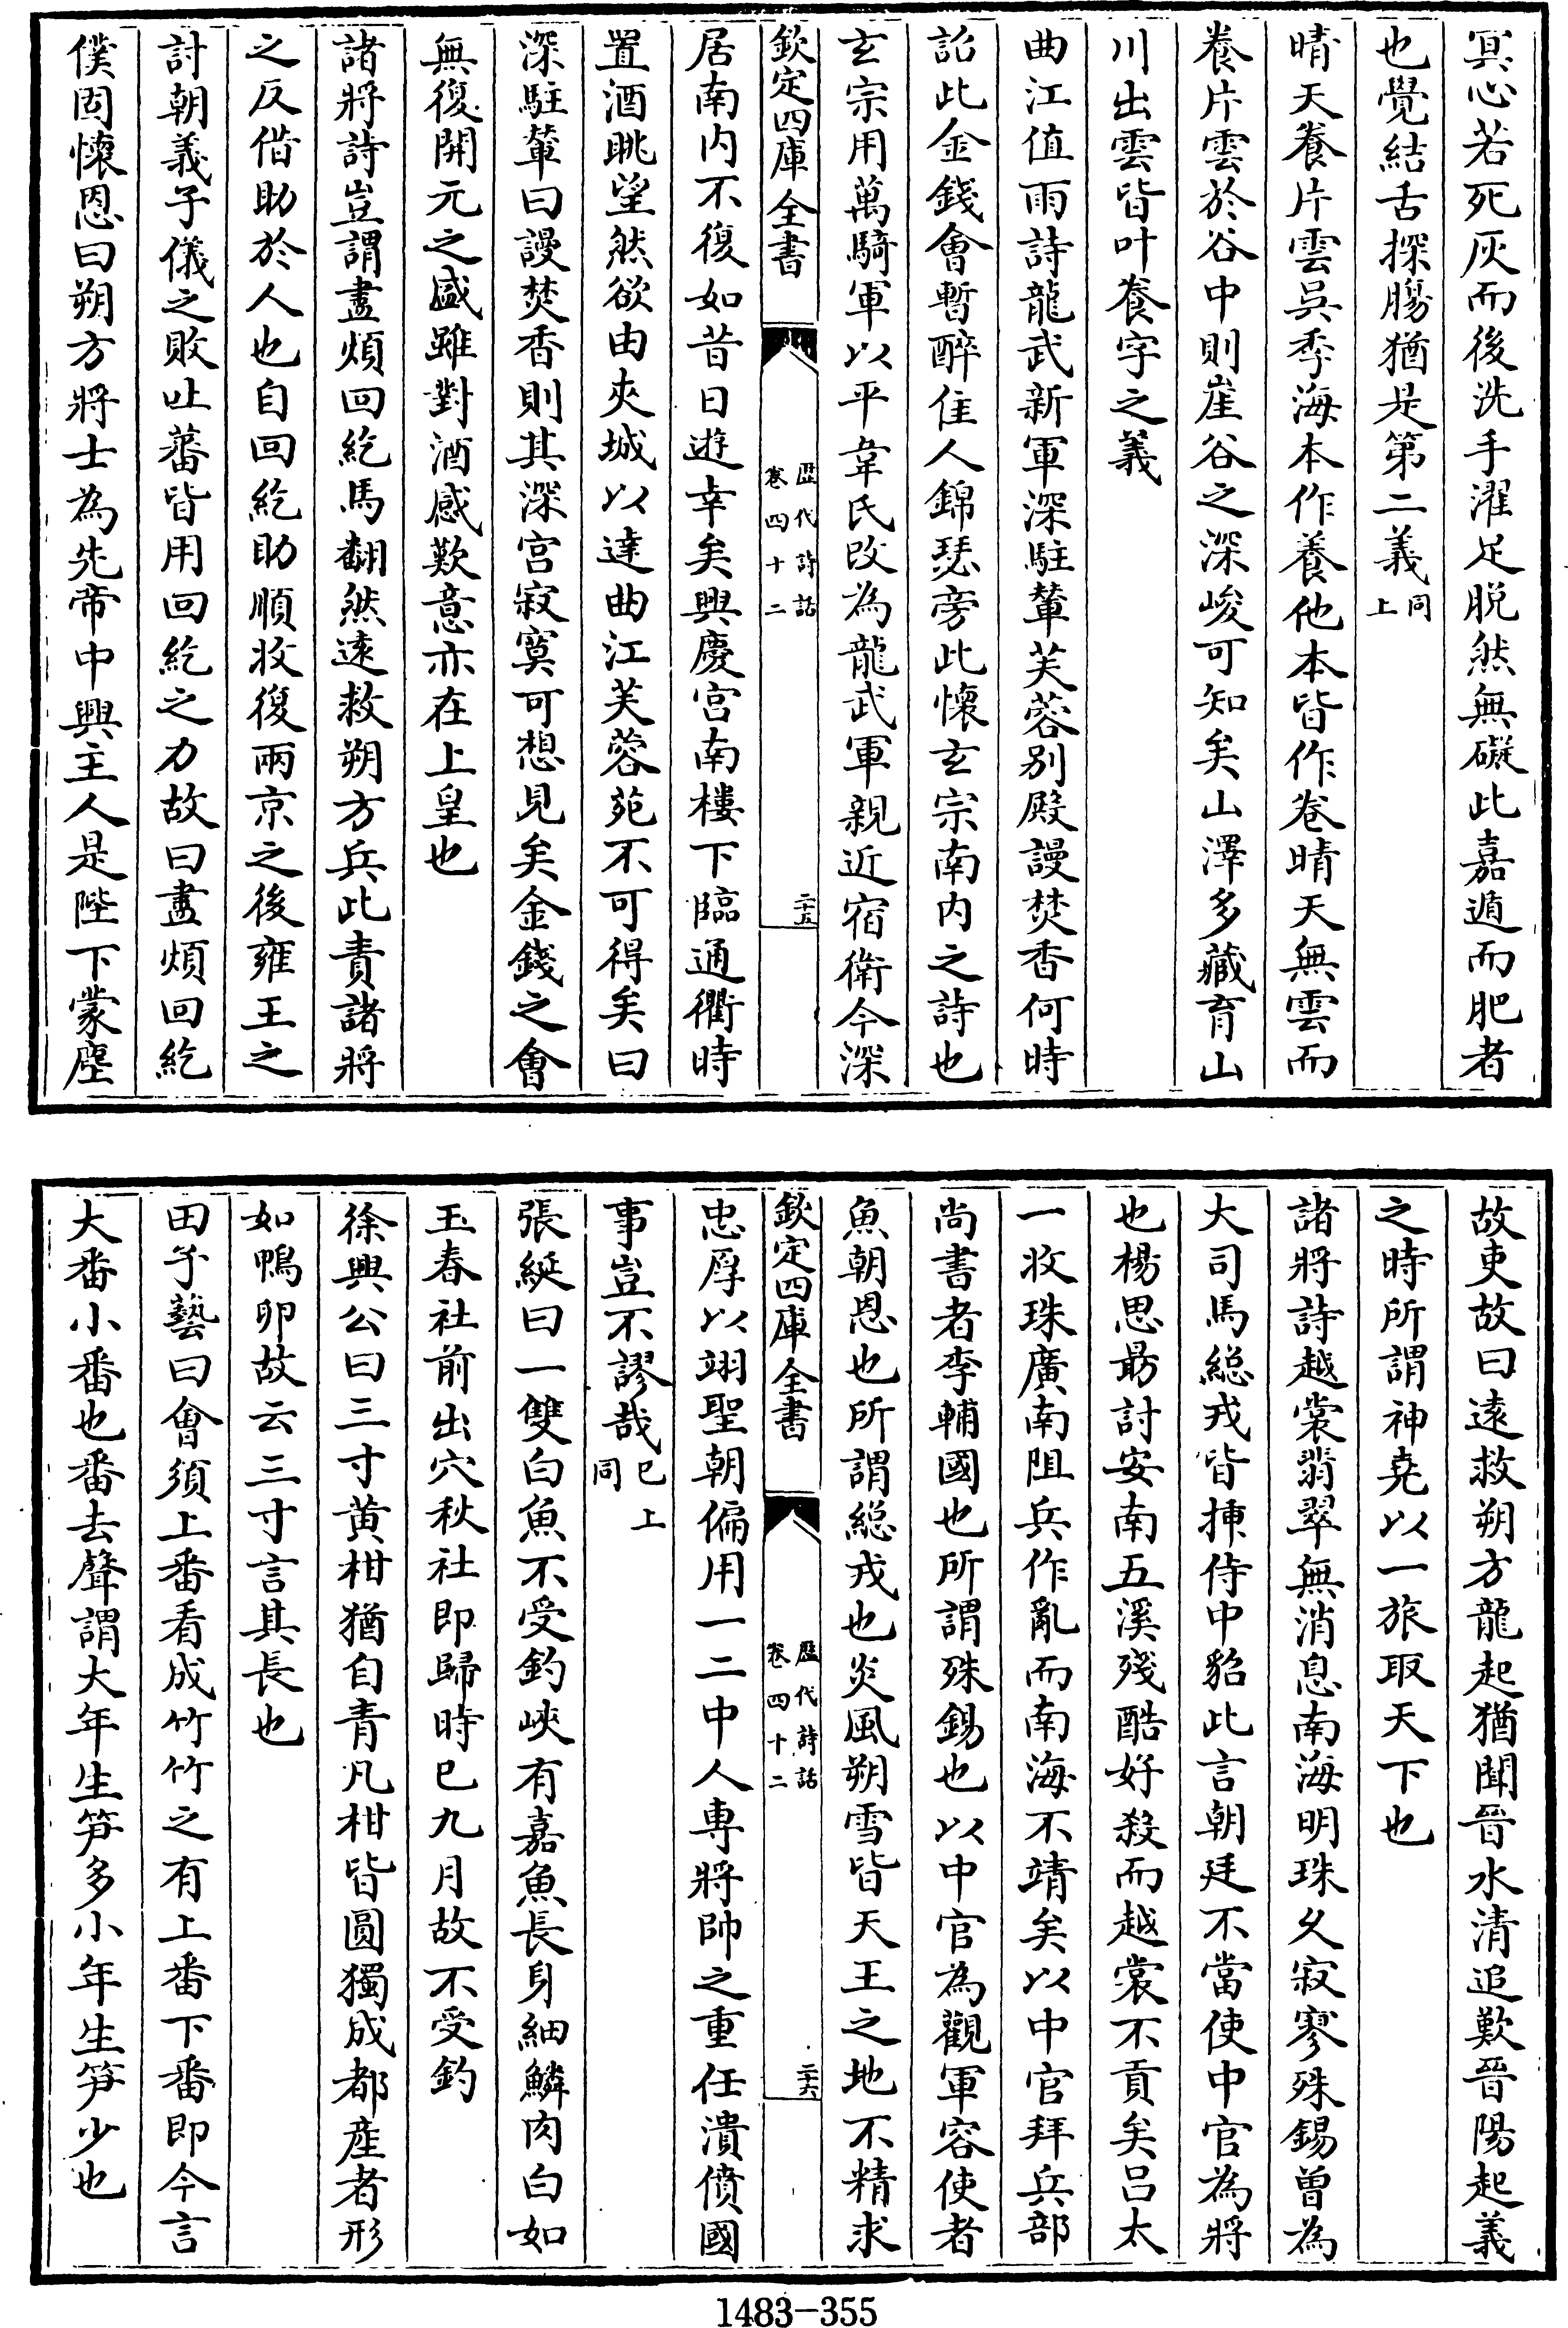 冥心若死灰而後洗手濯足脫然無礙此嘉遁而肥者
也覺結舌探腸猶是第二義同上
晴天養片雲吳季海本作養他本皆作卷晴天無雲而
養片雲於谷中則崖谷之深峻可知矣山澤多藏育山
川出雲皆叶養字之義
曲江值雨詩龍武新軍深駐輦芙蓉别殿謾焚香何時
詔此金錢會暫醉佳人錦瑟旁此懷玄宗南内之詩也
玄宗用萬騎軍以平韋氏改為龍武軍親近宿衛今深
欽定四庫全書
歷代詩話
卷四十二
二十五
居南内不復如昔日遊幸矣興慶宫南樓下臨通衢時
置酒眺望然欲由夾城以達曲江芙蓉苑不可得矣曰
深駐輦曰謾焚香則其深宫寂寞可想見矣金錢之會
無復開元之盛雖對酒感歎意亦在上皇也
諸將詩豈謂盡煩回紇馬翻然遠救朔方兵此責諸將
之反借助於人也自回紇助順收復兩京之後雍王之
討朝義子儀之敗吐蕃皆用回紇之力故曰盡煩回紇
僕固懷恩曰朔方將士為先帝中興主人是陛下蒙塵
故吏故曰遠救朔方龍起猶聞晉水清追歎晉陽起義
之時所謂神堯以一旅取天下也
諸將詩越裳翡翠無消息南海明珠乆寂寥殊錫曾為
大司馬總戎皆揷侍中貂此言朝廷不當使中官為將
也楊思勗討安南五溪殘酷好殺而越裳不貢矣吕太
一收珠廣南阻兵作亂而南海不靖矣以中官拜兵部
尚書者李輔國也所謂殊錫也以中官為觀軍容使者
魚朝恩也所謂總戎也炎風朔雪皆天王之地不精求
欽定四庫全書
歷代詩話
卷四十二
二十六
忠厚以翊聖朝偏用一二中人專將帥之重任潰僨國
事豈不謬哉已上同
張綖曰一雙白魚不受釣峽有嘉魚長身細鱗肉白如
玉春社前出穴秋社即歸時已九月故不受釣
徐興公曰三寸黄柑猶自青凡柑皆圓獨成都産者形
如鴨卵故云三寸言其長也
田子藝曰會須上番看成竹竹之有上番下番即今言
大番小番也番去聲謂大年生笋多小年生笋少也
1483-355